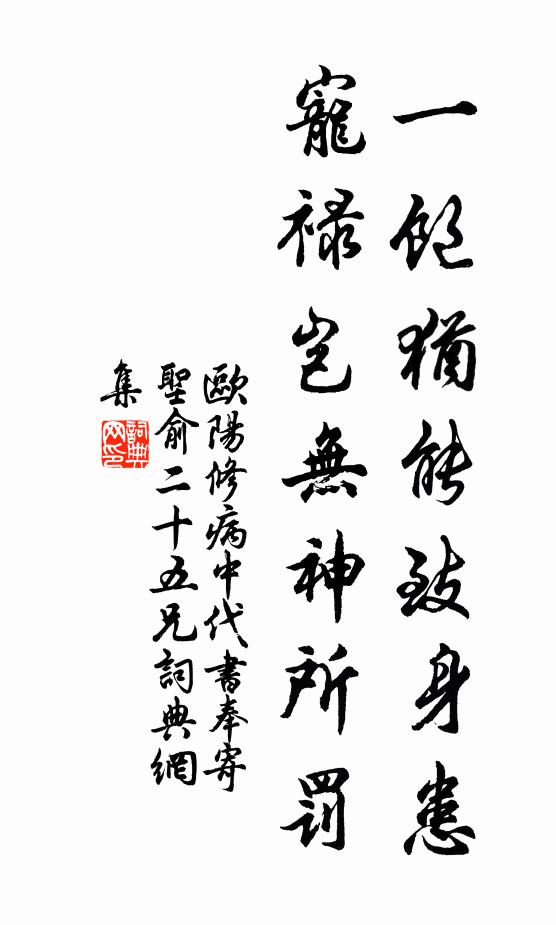 一飽猶能致身患
寵祿豈無神所罰
歐陽修病中代書奉寄
聖俞二十五兄詞典網
集
詞典
网印